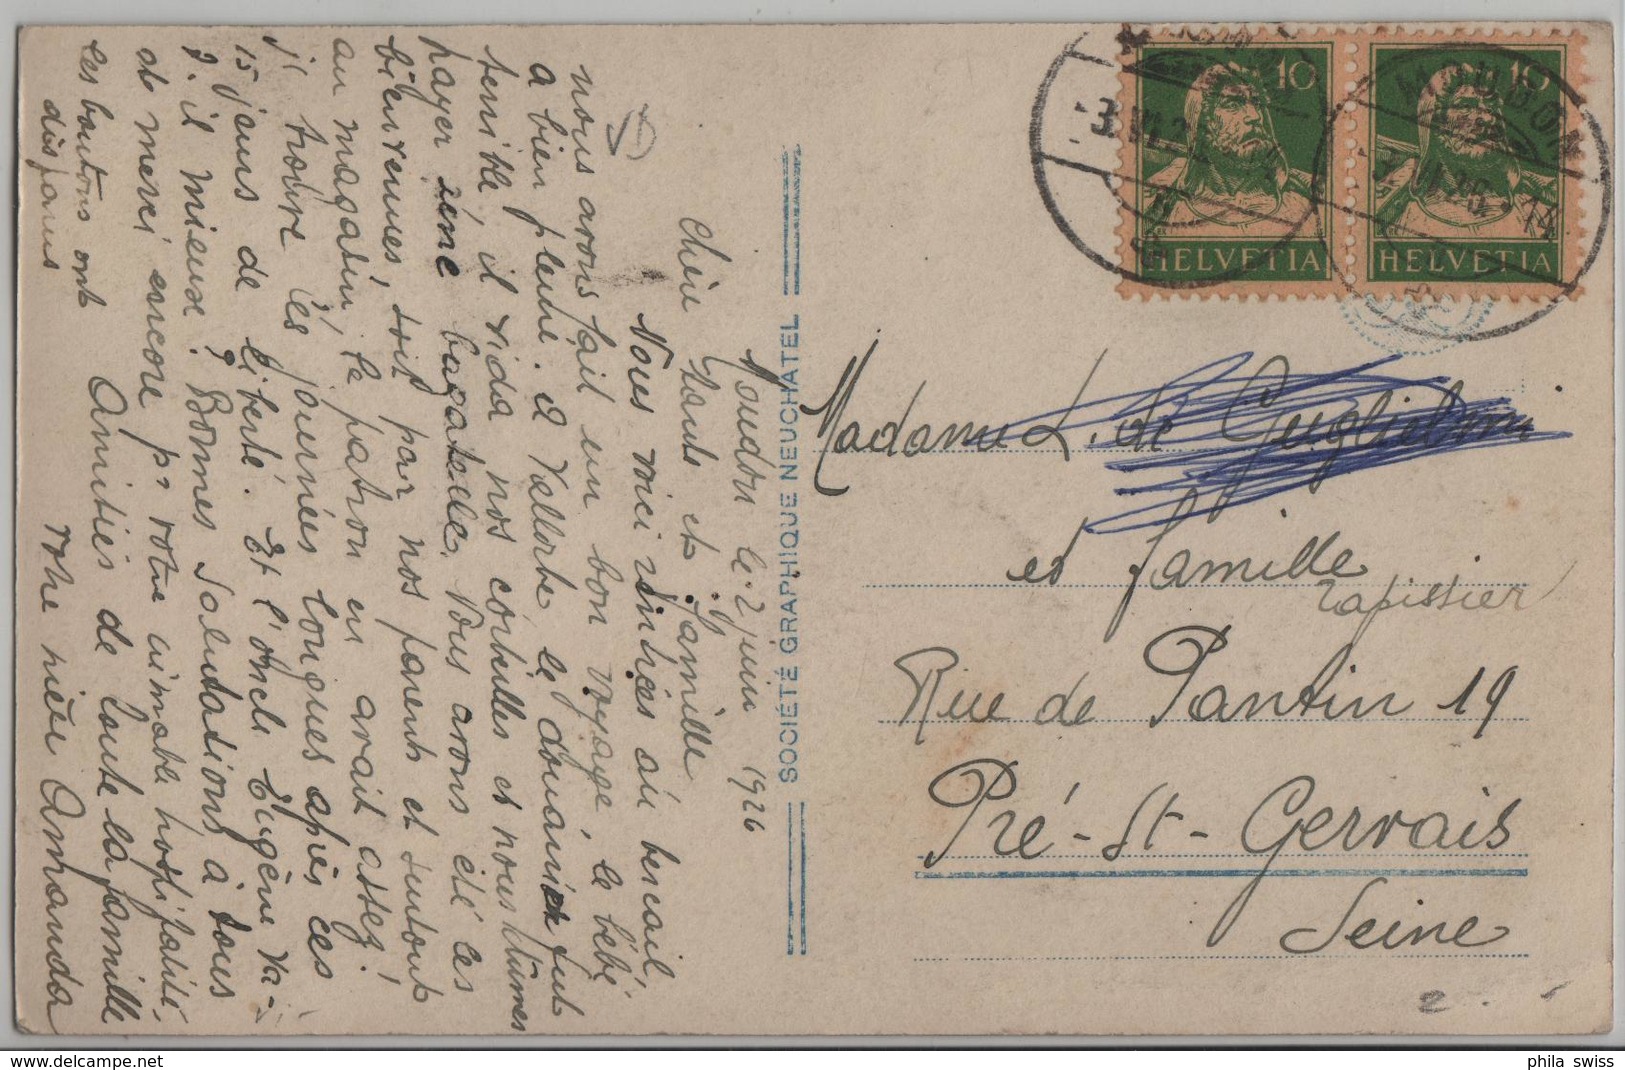 Moudon le 2 juin 1926
Chère Tante et famille
Nous voici rentrées au bercail,
nous avons fait un bon voyage, le bébé
a bien pleuré. A Vallorbe le douanier fut
terrible, il vida nos corbeilles et nous fûmes
payer une bagatelle. Nous avons été les
bienvenues, soit par nos parents et surtout
au magasin, le patron en avait assez!
J'ai trouvé les journées longues après ces
15 jours de liberté. Et l'oncle Eugène va-
t-il mieux? Bonnes Salutations à tous
et merci encore pr votre aimable hospitalité,
Amitiés de toute la famille
les boutons ont
disparus
votre nièce Amanda
SOCIÉTÉ GRAPHIQUE NEUCHATEL
10
10
HELVETIA
HELVETIA
MOUDON
3 VI 26 - 14
Madame L. de Guglielmi
et famille
tapissier
Rue de Pantin 19
Pré-St-Gervais
Seine
phila swiss